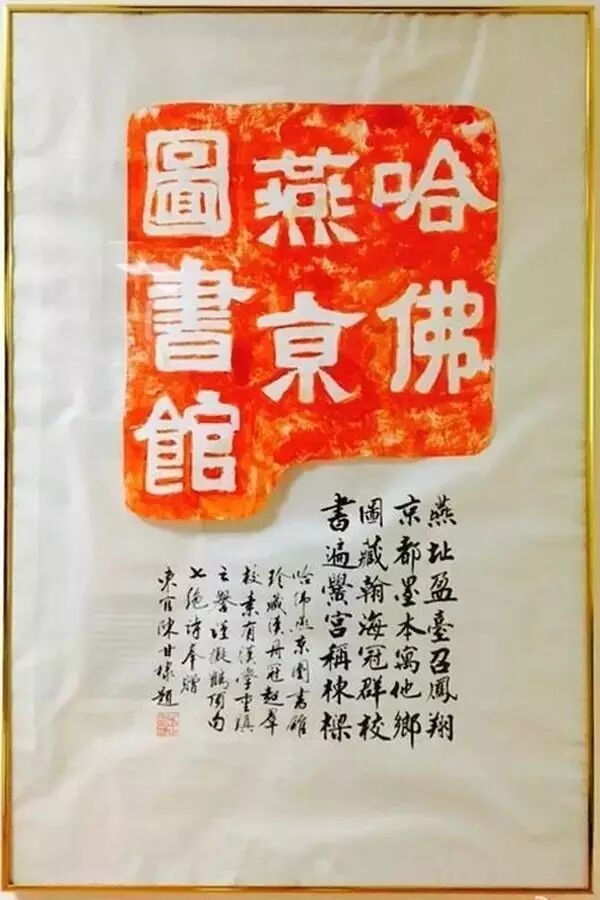 哈佛
燕京
圖書館
燕址盈臺召鳳翔
京都墨本寓他鄉
圖藏翰海冠群校
書遍黌宮稱棟樑
哈佛燕京圖書館
珍藏漢冊冠超羣
校素有漢學重鎮
之譽謹鶴頂句
七絕詩奉贈
東官陳甘棣題